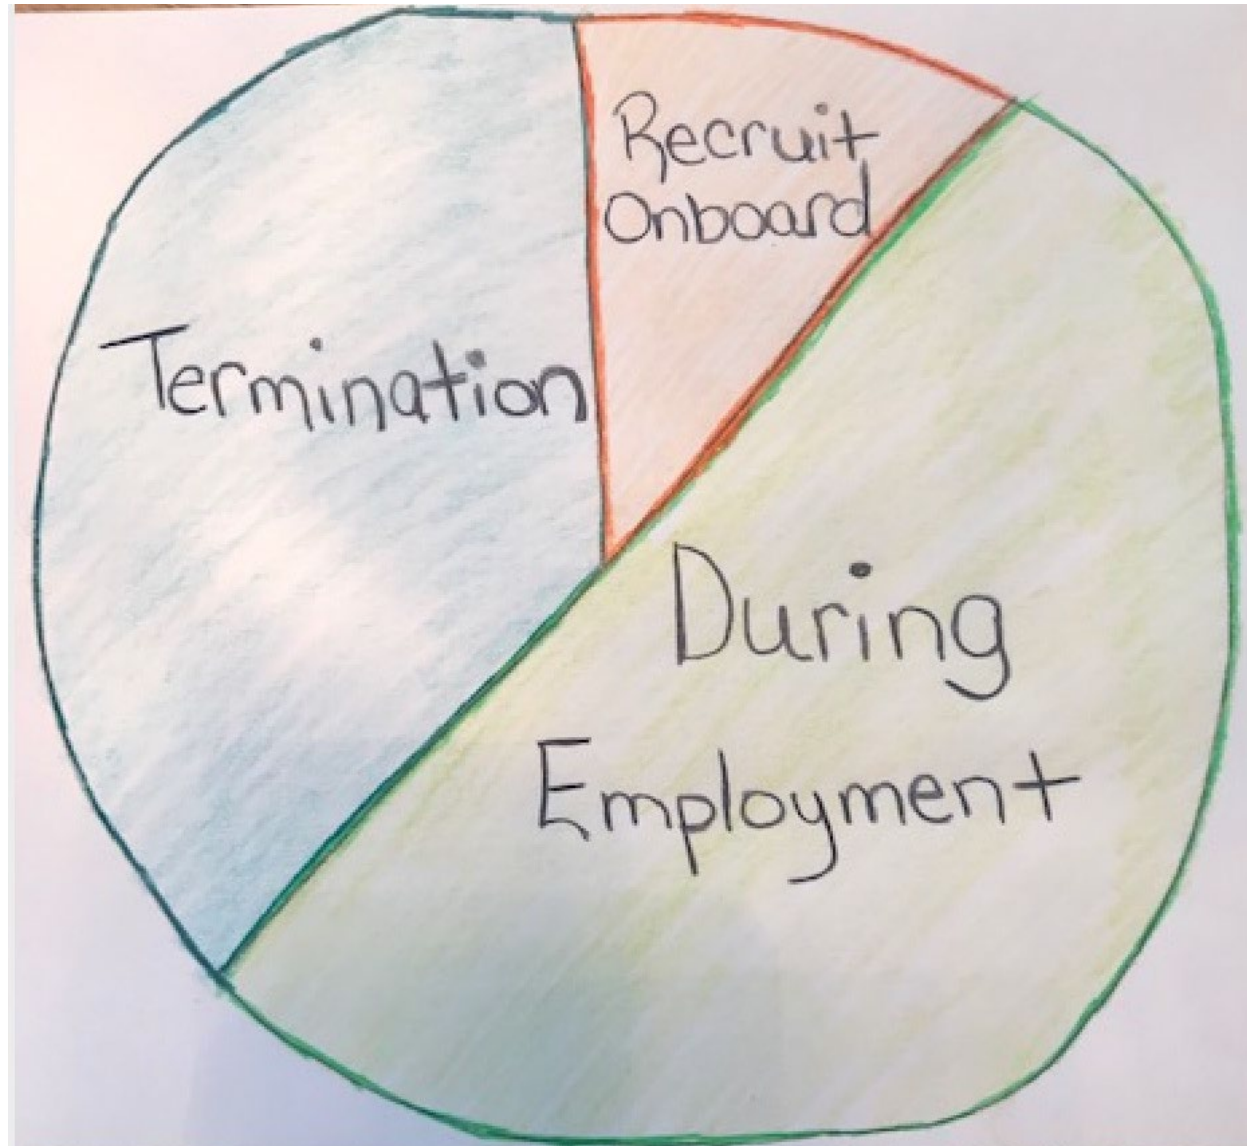 Recruit
Onboard
Termination
During
Employment